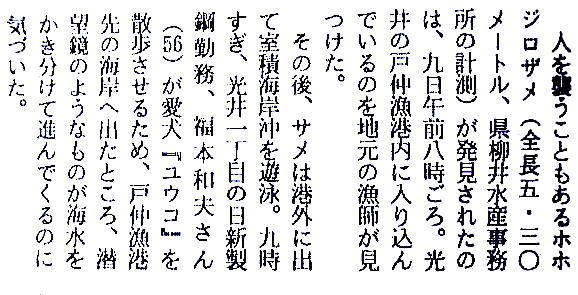 人を襲うこともあるホホ
ジロザメ（全長五・三〇
メートル、県柳井水産事務
所の計測）が発見されたの
は、九日午前八時ごろ。光
井の戸仲漁港内に入り込ん
でいるのを地元の漁師が見
つけた。
その後、サメは港外に出
て室積海岸沖を遊泳。九時
すぎ、光井一丁目の日新製
鋼勤務、福本和夫さん
（56）が愛犬『ユウコ』を
散歩させるため、戸仲漁港
先の海岸へ出たところ、潜
望鏡のようなものが海水を
かき分けて進んでくるのに
気づいた。